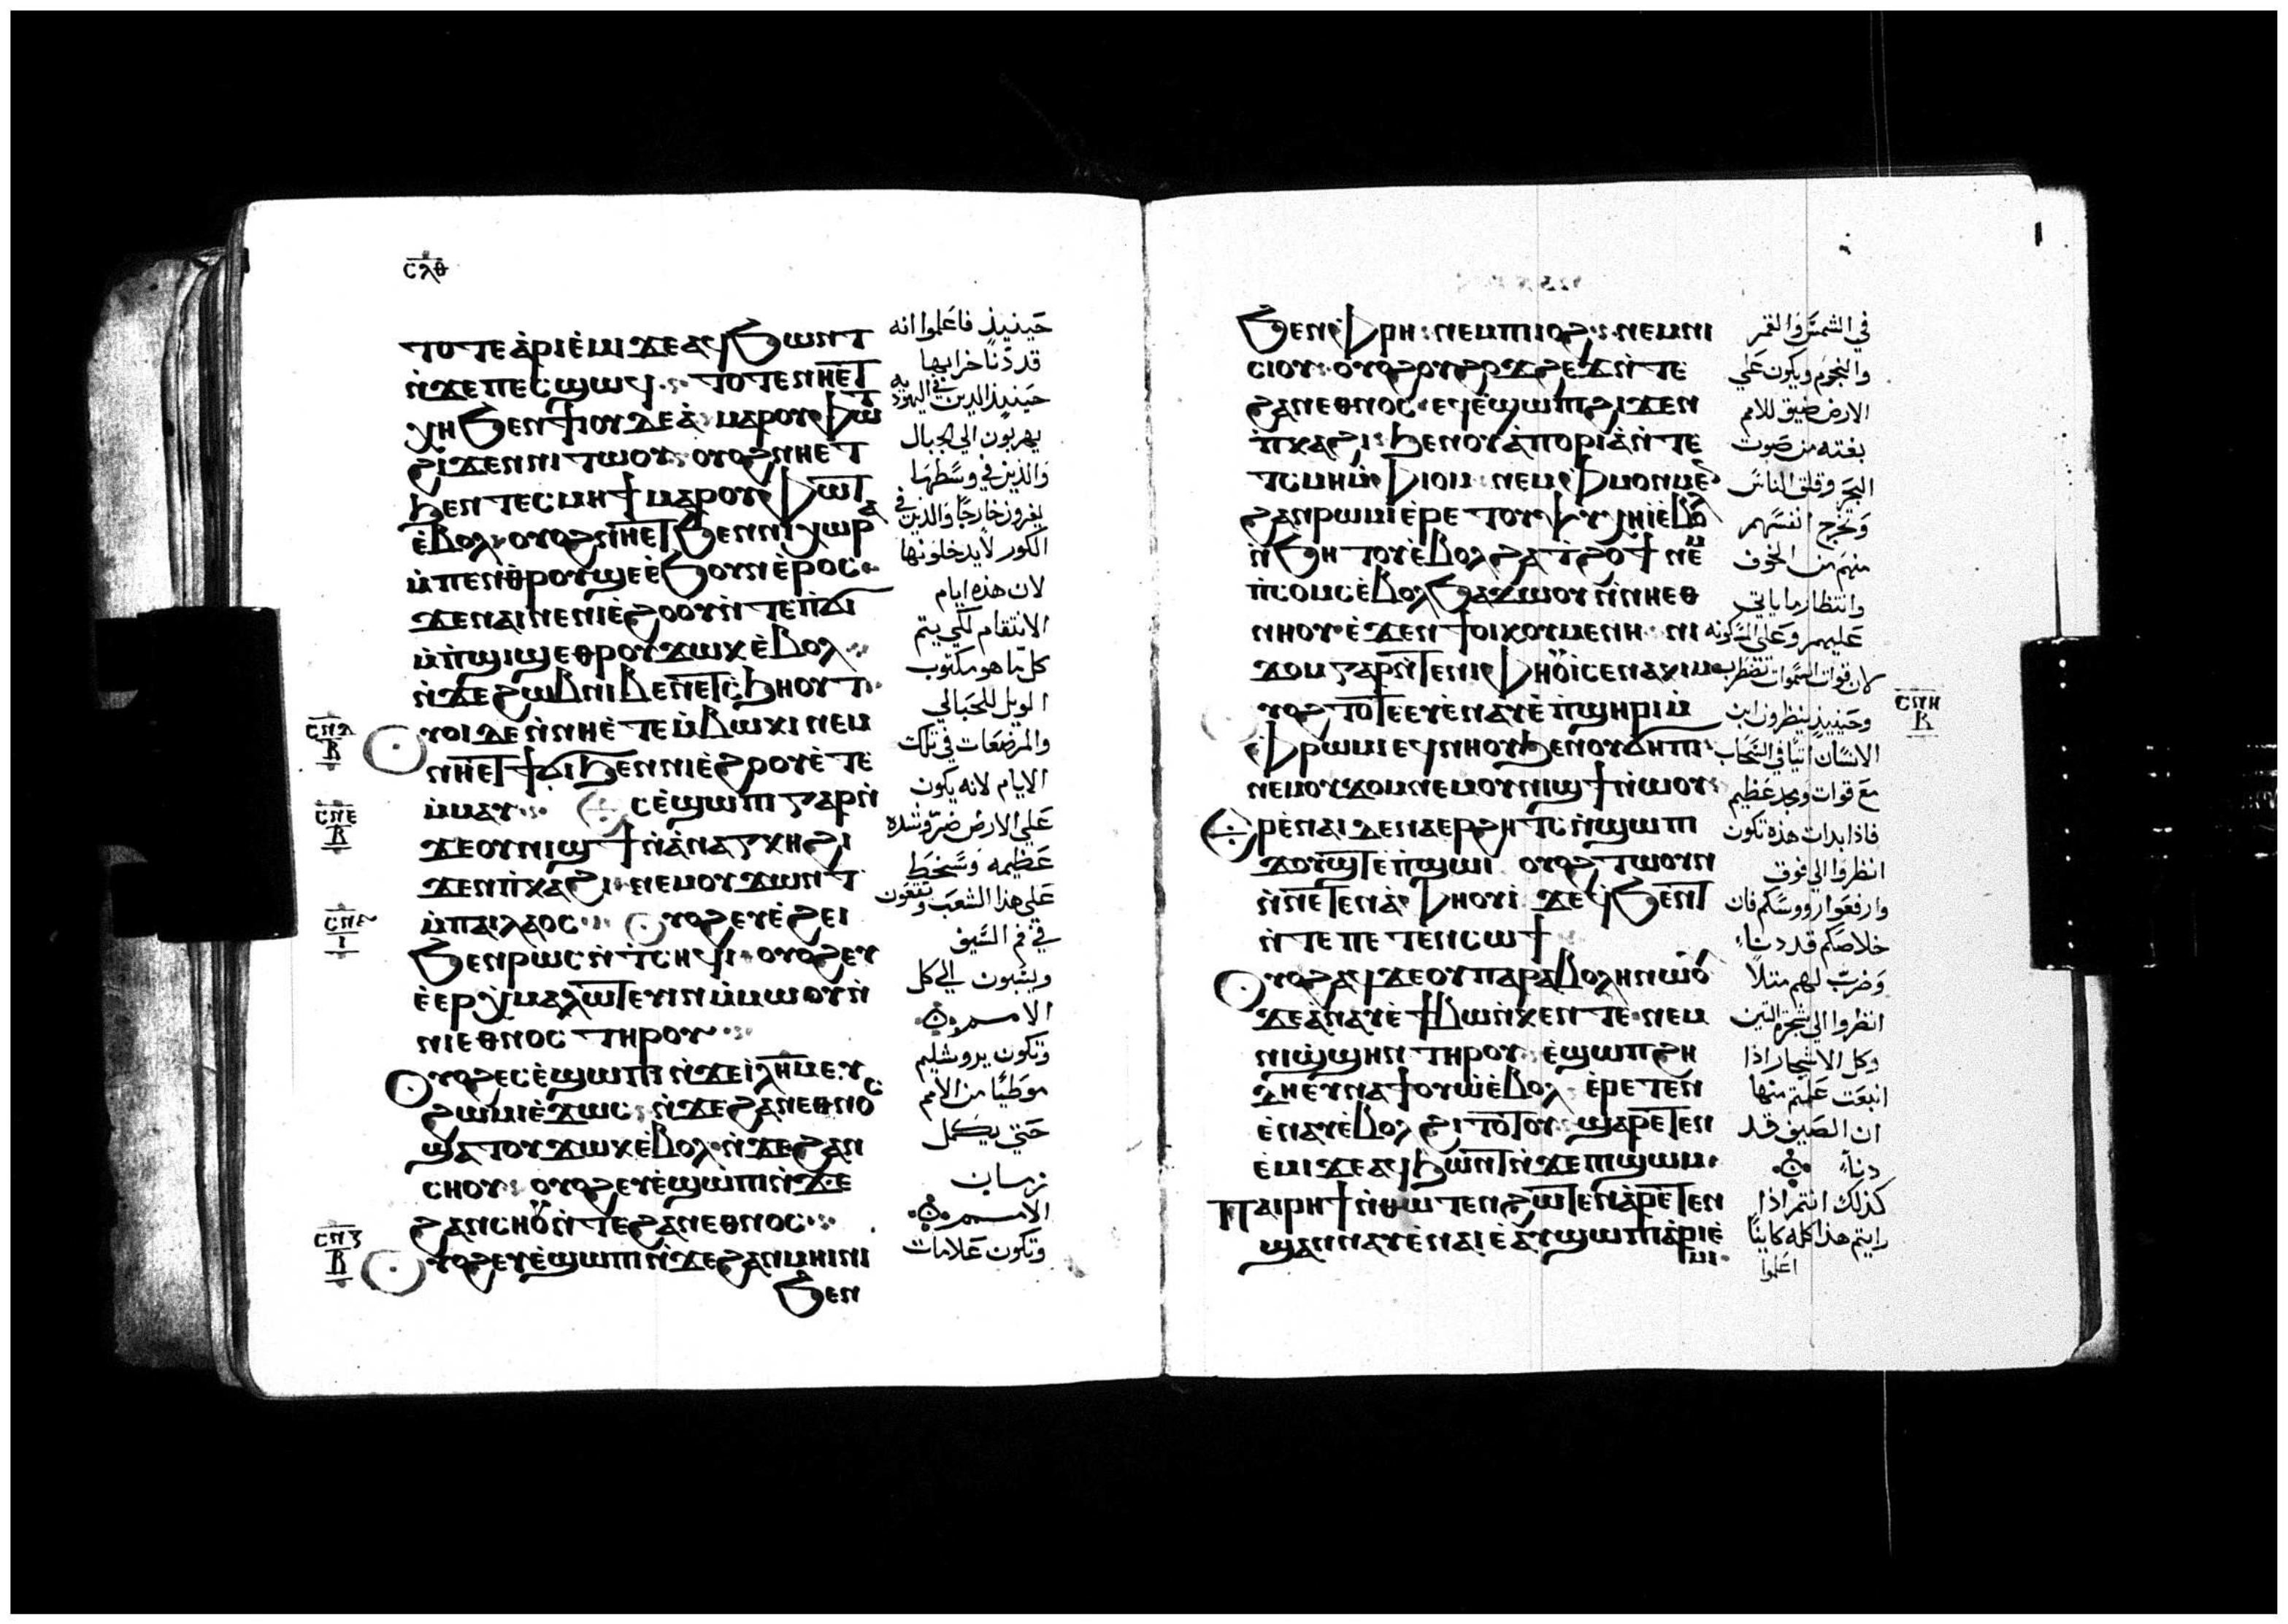 ⲥⲗⲑ
ⲧⲟⲧⲉ ⲁ̀ⲣⲓⲉ̀ⲙⲓ ϫⲉ ⲁϥϧⲱⲛⲧ
ⲛ̀ϫⲉ ⲡⲉⲥϣⲱϥ ⲧⲟⲧⲉ ⲛⲏⲉⲧ
ⲭⲏ ϧⲉⲛ ϯⲓⲟⲩⲇⲉⲁ̀ ⲙⲁⲣⲟⲩⲫⲱⲧ
ϩⲓϫⲉⲛ ⲛⲓⲧⲱⲟⲩ ⲟⲩⲟϩ ⲛⲏⲉⲧ
ϧⲉⲛ ⲧⲉⲥⲙⲏϯ ⲙⲁⲣⲟⲩⲫⲱⲧ
ⲉ̀ⲃⲟⲗ ⲟⲩⲟϩ ⲛⲏⲉⲧ ϧⲉⲛ ⲛⲓⲭⲱⲣⲁ
ⲙ̀ⲡⲉⲛⲑⲣⲟⲩϣⲉ ⲉ̀ϧⲟⲩⲛ ⲉ̀ⲣⲟⲥ
ϫⲉ ⲛⲁⲓ ⲛⲉ ⲛⲓⲉ̀ϩⲟⲟⲩ ⲛ̀ⲧⲉ ⲡ̀ϭⲓ
ⲙ̀ⲡ̀ϣⲓϣ ⲉⲑⲣⲟⲩϫⲱⲕ ⲉ̀ⲃⲟⲗ
ⲛ̀ϫⲉ ϩⲱⲃ ⲛⲓⲃⲉⲛ ⲉⲧⲥ̀ϧⲏⲟⲩⲧ
ⲟⲩⲟⲓ ⲇⲉ ⲛ̀ⲛⲏⲉ̀ⲧⲉⲙ̀ⲃⲱⲕⲓ ⲛⲉⲙ
ⲛⲏⲉⲧϯϭⲓ ϧⲉⲛ ⲛⲓⲉ̀ϩⲟⲟⲩ ⲉ̀ⲧⲉ
ⲙ̀ⲙⲁⲩ ⲉⲥⲉ̀ϣⲱⲡⲓ ⲅⲁⲣ ⲛ̀
ϫⲉ ⲟⲩⲛⲓϣϯ ⲛ̀ⲁ̀ⲛⲁⲅⲕⲏ ϩⲓ
ϫⲉⲛ ⲡ̀ⲕⲁϩⲓ ⲛⲉⲙ ⲟⲩϫⲱⲛⲧ
ⲙ̀ⲡⲁⲓⲗⲁⲟⲥ ⲟⲩⲟϩ ⲉⲩⲉ̀ϩⲉⲓ
ϧⲉⲛ ⲣⲱⲥ ⲛ̀ⲧⲥⲏϥⲓ ⲟⲩⲟϩ ⲉⲩ
ⲉ̀ⲉⲣⲉⲭⲙⲁⲗⲱⲧⲉⲩⲓⲛ ⲙ̀ⲙⲱⲟⲩ ⲛ̀
ⲛⲓⲉⲑⲛⲟⲥ ⲧⲏⲣⲟⲩ
ⲟⲩⲟϩ ⲉⲥⲉ̀ϣⲱⲡⲓ ⲛ̀ϫⲉ ⲓ̅ⲗ̅ⲏ̅ⲙ̅ ⲉⲩ
ϩⲱⲙⲓ ⲉ̀ϫⲱⲥ ⲛ̀ϫⲉ ϩⲁⲛⲉⲑⲛⲟⲥ
ϣⲁⲧⲟⲩϫⲱⲕ ⲉ̀ⲃⲟⲗ ⲛ̀ϫⲉ ϩⲁⲛ
ⲥⲏⲟⲩ ⲟⲩⲟϩ ⲉⲩⲉ̀ϣⲱⲡⲓ ⲛ̀ϫⲉ
ϩⲁⲛⲥⲏⲟⲩ ⲛ̀ⲧⲉ ϩⲁⲛⲉⲑⲛⲟⲥ
ⲟⲩⲟϩ ⲉⲩⲉ̀ϣⲱⲡⲓ ⲛ̀ϫⲉ ϩⲁⲛⲙⲏⲓⲛⲓ
ϧⲉⲛ
حينيذ فاعلموا انه
قد دنا خرابها
حينيذ الدين في اليهوديه
يهربون الي الجبال
والذين في وسطها
يفرون خارجا والذين في
الكور لا يدخلونها
لان هذه ايام
الانتقام لكي يتم
كل ما هو مكتوب
الويل للحبالي
والمرضعات في تلك
الايام لانه يكون
علي الارض ضر وشده
عظيمه وسخط
علي هذا الشعب ويقعون
في فم السيف
ويسبون الي كل
الامم
وتكون يروشليم
موطيا من الامم
حتي يكمل
زمان
الامم
وتكون علامات
ⲥⲡⲇ
ⲃ
ⲥⲡⲉ
ⲃ
ⲥⲡⲋ
ⲓ
ⲥⲡⲍ
ⲃ
ϧⲉⲛ ⲫ̀ⲣⲏ ⲛⲉⲙ ⲡⲓⲓⲟϩ ⲛⲉⲙ ⲛⲓ
ⲥⲓⲟⲩ ⲟⲩⲟϩ ⲟⲩϩⲟϫϩⲉϫ ⲛ̀ⲧⲉ
ϩⲁⲛⲉⲑⲛⲟⲥ ⲉϥⲉ̀ϣⲱⲡⲓ ϩⲓϫⲉⲛ
ⲡ̀ⲕⲁϩⲓ ϧⲉⲛ ⲟⲩⲁ̀ⲡⲟⲣⲓⲁ̀ ⲛ̀ⲧⲉ
ⲧⲥⲙⲏ ⲙ̀ⲫⲓⲟⲙ ⲛⲉⲙ ⲫⲙⲟⲛⲙⲉⲛ
ϩⲁⲛⲣⲱⲙⲓ ⲉ̀ⲣⲉ ⲧⲟⲩⲯⲩⲭⲏ ⲓ ⲉ̀ⲃⲟⲗ
ⲛ̀ϧⲏⲧⲟⲩ ⲉ̀ⲃⲟⲗ ϩⲁ ⲧϩⲟϯ ⲛⲉⲙ
ⲡ̀ⲥⲟⲙⲥ ⲉ̀ⲃⲟⲗ ϧⲁϫⲱⲟⲩ ⲛ̀ⲛⲏⲉⲑ
ⲛⲏⲟⲩ ⲉ̀ϫⲉⲛ ϯⲟⲓⲕⲟⲩⲙⲉⲛⲏ ⲛⲓ
ϫⲟⲙ ⲅⲁⲣ ⲛ̀ⲧⲉ ⲛⲓⲫⲏⲟⲩⲓ̀ ⲥⲉⲛⲁⲕⲓⲙ
ⲟⲩⲟϩ ⲧⲟⲧⲉ ⲉⲩⲉ̀ⲛⲁⲩ ⲉ̀ⲡ̀ϣⲏⲣⲓ ⲙ̀
ⲫ̀ⲣⲱⲙⲓ ⲉϥⲛⲏⲟⲩ ϧⲉⲛ ⲟⲩϭⲏⲡⲓ
ⲛⲉⲙ ⲟⲩϫⲟⲙ ⲛⲉⲙ ⲟⲩⲛⲓϣϯ ⲛ̀ⲱⲟⲩ
ⲉⲣⲉ ⲛⲁⲓ ⲇⲉ ⲛⲁⲉⲣϩⲏⲧⲥ ⲛ̀ϣⲱⲡⲓ
ϫⲟⲩϣⲧ ⲉ̀ⲡ̀ϣⲱⲓ ⲟⲩⲟϩ ⲧⲱⲟⲩⲛ
ⲛ̀ⲛⲉⲧⲉⲛⲁ̀ⲫⲏⲟⲩⲓ̀ ϫⲉ ϥϧⲉⲛⲧ
ⲛ̀ϫⲉ ⲡⲉⲧⲉⲛⲥⲱϯ
ⲟⲩⲟϩ ⲁϥϫⲉ ⲟⲩⲡⲁⲣⲁⲃⲟⲗⲏ ⲛⲱⲟⲩ
ϫⲉ ⲁ̀ⲛⲁⲩ ⲉ̀ϯⲃⲱ ⲛ̀ⲕⲉⲛⲧⲉ ⲛⲉⲙ
ⲛⲓϣ̀ϣⲏⲛ ⲧⲏⲣⲟⲩ ⲉ̀ϣⲱⲡ ϩⲏ
ⲇⲏ ⲉⲩⲛⲁϯⲟⲩⲱ ⲉ̀ⲃⲟⲗ ⲉ̀ⲣⲉⲧⲉⲛ
ⲉ̀ⲛⲁⲩ ⲉ̀ⲃⲟⲗ ϩⲓⲧⲟⲧⲟⲩ ϣⲁⲣⲉⲧⲉⲛ
ⲉ̀ⲙⲓ ϫⲉ ⲁϥϧⲱⲛⲧ ⲛ̀ϫⲉ ⲡⲓϣⲱⲙ
ⲡⲁⲓⲣⲏϯ ⲛ̀ⲑⲱⲧⲉⲛ ϩⲱⲧⲉⲛ ⲁ̀ⲣⲉⲧⲉⲛ
ϣⲁⲛⲛⲁⲩ ⲉ̀ⲛⲁⲓ ⲉ̀ⲁⲩϣⲱⲡⲓ ⲁ̀ⲣⲓⲉ̀
ⲙⲓ
في الشمس والقمر
والنجوم ويكون علي
الارض ضيق للامم
بغته من صوت
البحر وقلق الناس
وتخرج انفسهم
منهم من الخوف
وانتظار ما ياتي
عليهم وعلي المسكونه
لان قوات السموات تضطرب
وحينيذ ينظرون ابن
الانسان اتيا في السحاب
مع قوات ومجد عظيم
فاذا بدات هذه تكون
انظروا الي فوق
وارفعوا رووسكم فان
خلاصكم قد دنا
وضرب لهم مثلا
انظروا الي شجرة التين
وكل الاشجار اذا
انبعت علمتم منها
ان الصيف قد
دنا
كذلك انتم اذا
رايتم هذا كله كاينا
اعلموا
ⲥⲡⲏ
ⲃ